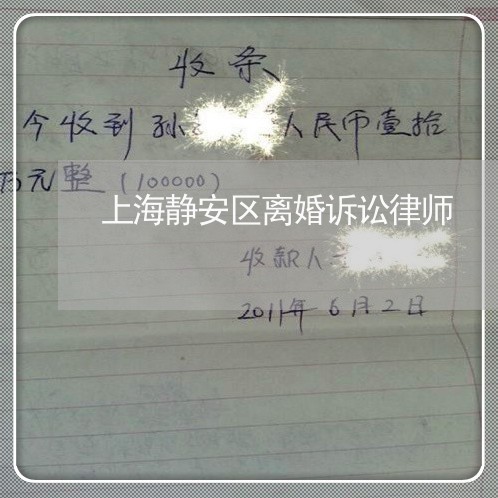 收条
今收到孙 人民币壹拾
万元整（100000）
上海静安区离婚诉讼律师
收款人
2011年6月2日